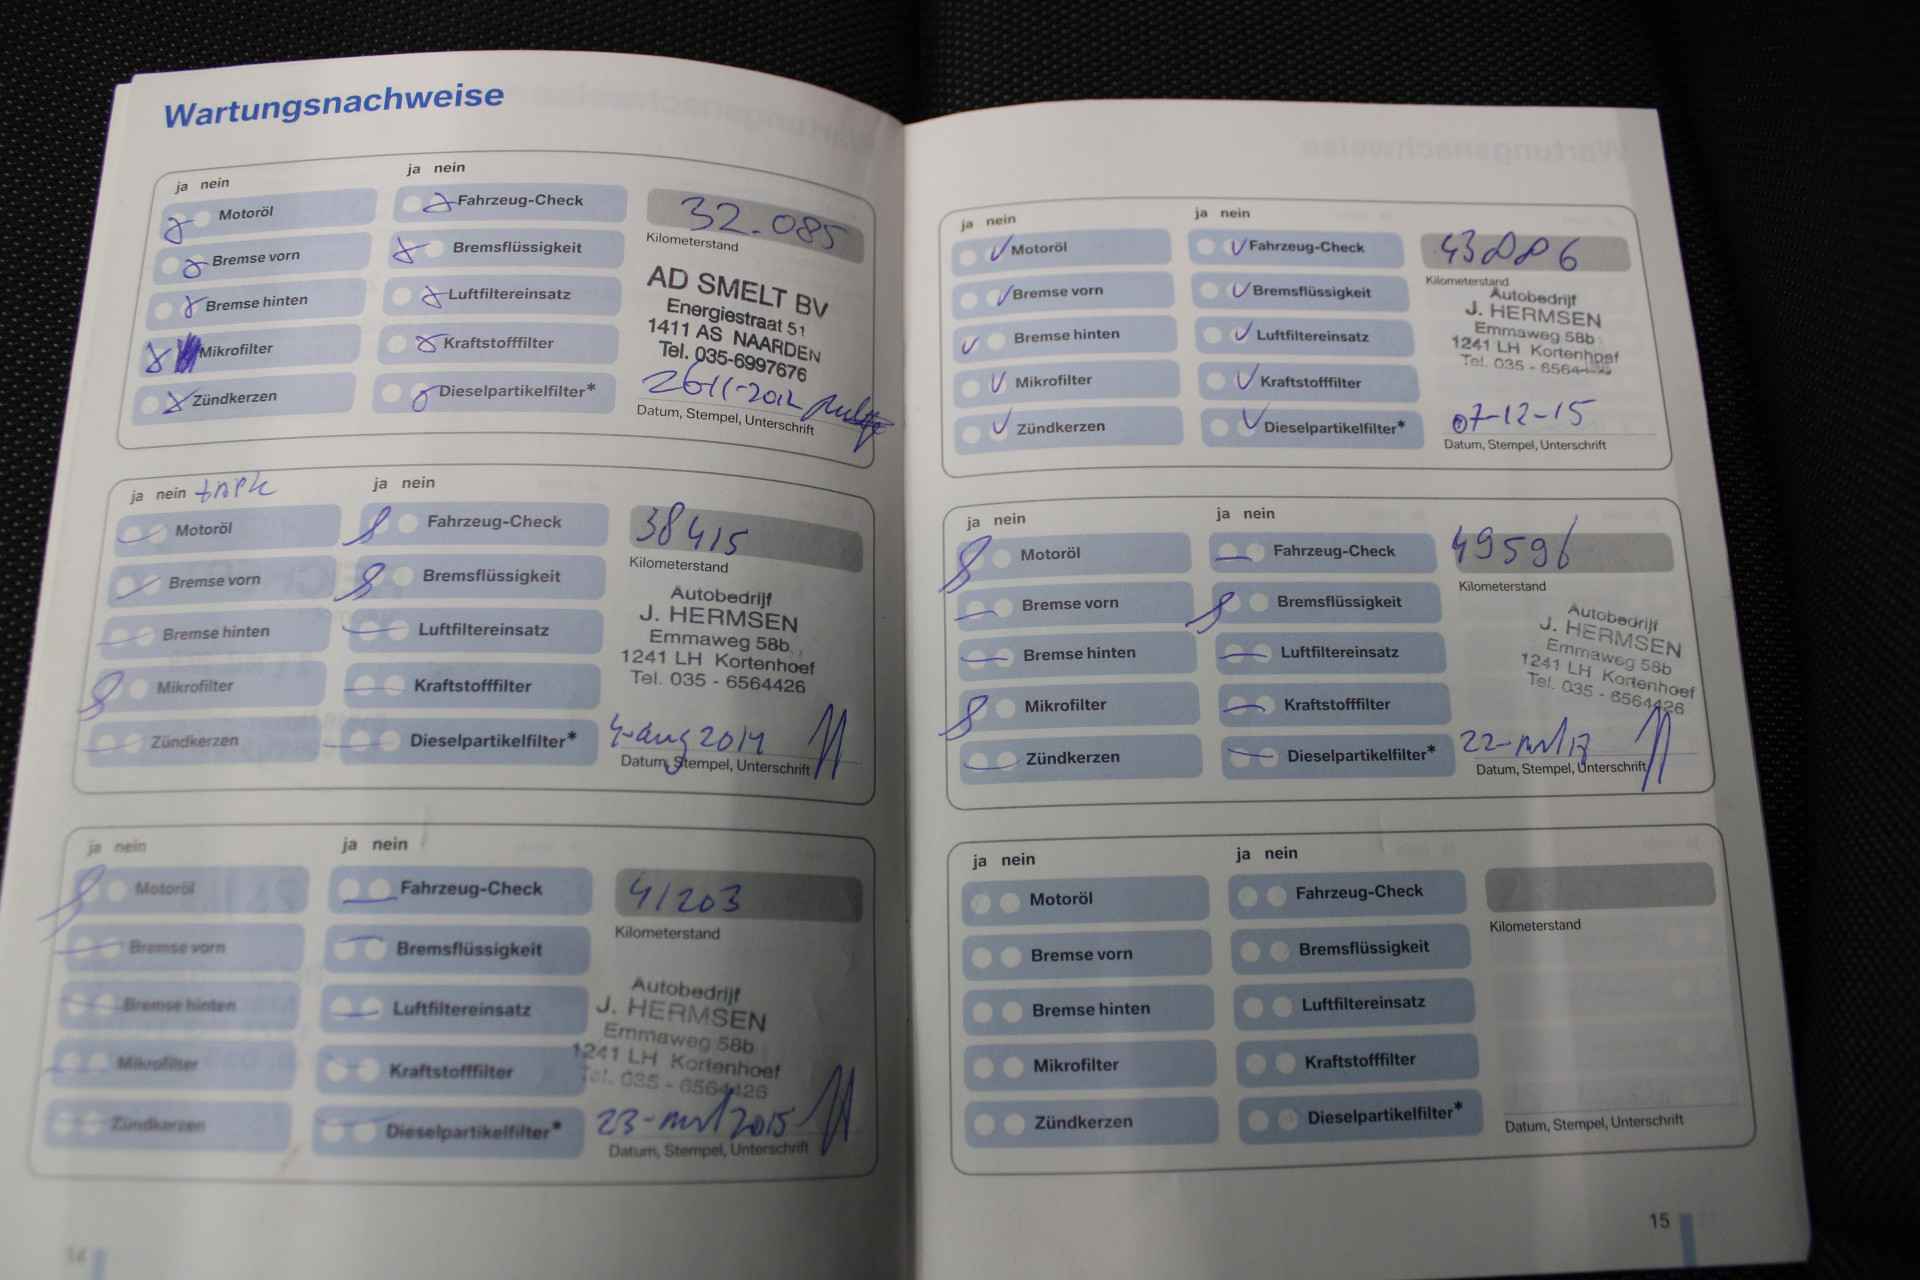 Wartungsnachweise
ja nein
ja nein
Motoröl
Bremse vorn
Bremse hinten
Mikrofilter
Zündkerzen
Fahrzeug-Check
Bremsflüssigkeit
Luftfiltereinsatz
Kraftstofffilter
Dieselpartikelfilter*
32.085
Kilometerstand
AD SMELT BV
Energiestraat 51
1411 AS NAARDEN
Tel. 035-6997676
26-11-2012
Datum, Stempel, Unterschrift
ja nein
ja nein
Motoröl
Bremse vorn
Bremse hinten
Mikrofilter
Zündkerzen
Fahrzeug-Check
Bremsflüssigkeit
Luftfiltereinsatz
Kraftstofffilter
Dieselpartikelfilter*
38415
Kilometerstand
Autobedrijf
J. HERMSEN
Emmaweg 58b
1241 LH Kortenhoef
Tel. 035 - 6564426
4-aug 2014
Datum, Stempel, Unterschrift
ja nein
ja nein
Motoröl
Bremse vorn
Bremse hinten
Mikrofilter
Zündkerzen
Fahrzeug-Check
Bremsflüssigkeit
Luftfiltereinsatz
Kraftstofffilter
Dieselpartikelfilter*
41203
Kilometerstand
Autobedrijf
J. HERMSEN
Emmaweg 58b
1241 LH Kortenhoef
Tel. 035 - 6564426
23-mrt 2015
Datum, Stempel, Unterschrift
14
ja nein
ja nein
Motoröl
Bremse vorn
Bremse hinten
Mikrofilter
Zündkerzen
Fahrzeug-Check
Bremsflüssigkeit
Luftfiltereinsatz
Kraftstofffilter
Dieselpartikelfilter*
43886
Kilometerstand
Autobedrijf
J. HERMSEN
Emmaweg 58b
1241 LH Kortenhoef
Tel. 035 - 6564426
07-12-15
Datum, Stempel, Unterschrift
ja nein
ja nein
Motoröl
Bremse vorn
Bremse hinten
Mikrofilter
Zündkerzen
Fahrzeug-Check
Bremsflüssigkeit
Luftfiltereinsatz
Kraftstofffilter
Dieselpartikelfilter*
49596
Kilometerstand
Autobedrijf
J. HERMSEN
Emmaweg 58b
1241 LH Kortenhoef
Tel. 035 - 6564426
22-mrt 17
Datum, Stempel, Unterschrift
ja nein
ja nein
Motoröl
Bremse vorn
Bremse hinten
Mikrofilter
Zündkerzen
Fahrzeug-Check
Bremsflüssigkeit
Luftfiltereinsatz
Kraftstofffilter
Dieselpartikelfilter*
Kilometerstand
Datum, Stempel, Unterschrift
15